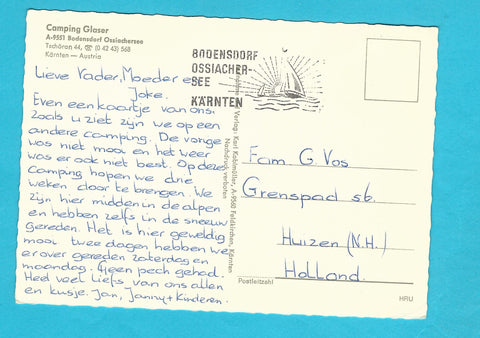 Camping Glaser
A-9551 Bodensdorf Ossiachersee
Tschöran 44, ☎ (0 42 43) 568
Kärnten — Austria
BODENSDORF
OSSIACHER-
SEE
KÄRNTEN
Lieve Vader, Moeder en
Joke.
Even een kaartje van ons.
Zoals u ziet zijn we op een
andere camping. De vorige
was niet mooi en het weer
was er ook niet best. Op deze
Camping hopen we drie
weken door te brengen. We
zijn hier midden in de alpen
en hebben zelfs in de sneeuw
gereden. Het is hier geweldig
mooi twee dagen hebben we
er over gereden zaterdag en
maandag. Geen pech gehad.
Heel veel liefs van ons allen
en kusje. Jan, Janny + Kinderen.
Verlag: Karl Kobimüller, A-9560 Feldkirchen, Kärnten
Nachdruck verboten
Fam. G. Vos.
Grenspad 56.
Huizen (N.H.)
Holland.
Postleitzahl
HRU